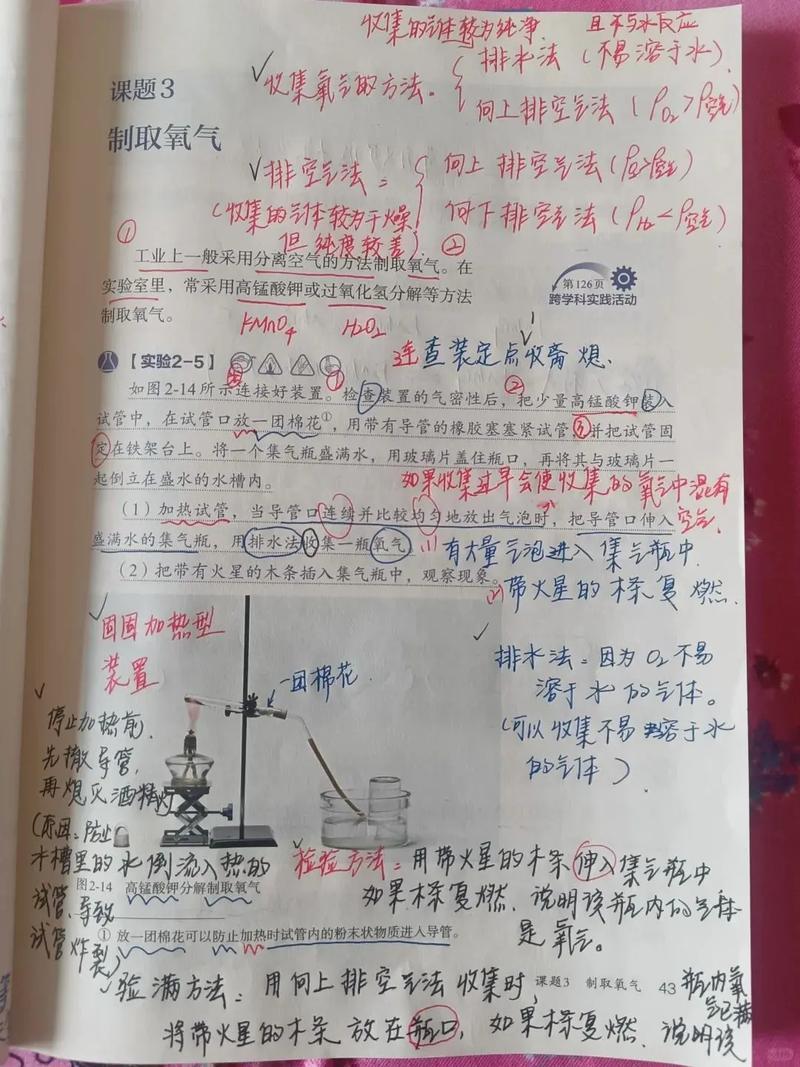 收集的气体较为纯净 且不与水反应
课题3
制取氧气
✓收集氧气的方法。
排水法（不易溶于水）
向上排空气法（ρO₂>ρ空气）
✓排空气法：
（收集的气体较为干燥
但纯度较差）
向上排空气法（ρ气>ρ空气）
向下排空气法（ρH₂<ρ空气）
① ②
工业上一般采用分离空气的方法制取氧气。在
实验室里，常采用高锰酸钾或过氧化氢分解等方法
制取氧气。
KMnO₄ H₂O₂
第126页
跨学科实践活动
【实验2-5】
连查装定点收离熄.
如图2-14所示连接好装置。检查装置的气密性后，把少量高锰酸钾装入
试管中，在试管口放一团棉花①，用带有导管的橡胶塞塞紧试管口，并把试管固
定在铁架台上。将一个集气瓶盛满水，用玻璃片盖住瓶口，再将其与玻璃片一
起倒立在盛水的水槽内。
如果收集过早会使收集的氧气中混有
空气.
（1）加热试管，当导管口连续并比较均匀地放出气泡时，把导管口伸入
盛满水的集气瓶，用排水法收集一瓶氧气。
(1)有大量气泡进入集气瓶中
（2）把带有火星的木条插入集气瓶中，观察现象。
(2)带火星的木条复燃.
✓固固加热型
装置
一团棉花.
✓排水法：因为O₂不易
溶于水的气体。
（可以收集不易溶于水
的气体）
✓停止加热前，
先撤导管，
再熄灭酒精灯
（原因：防止
水槽里的水倒流入热的
试管、导致
试管炸裂）
✓检验方法：用带火星的木条伸入集气瓶中
如果木条复燃，说明该瓶内的气体
是氧气。
图2-14 高锰酸钾分解制取氧气
① 放一团棉花可以防止加热时试管内的粉末状物质进入导管。
课题3 制取氧气 43
✓验满方法：用向上排空气法收集时，
将带火星的木条放在瓶口，如果木条复燃，说明该
瓶内氧
气已满